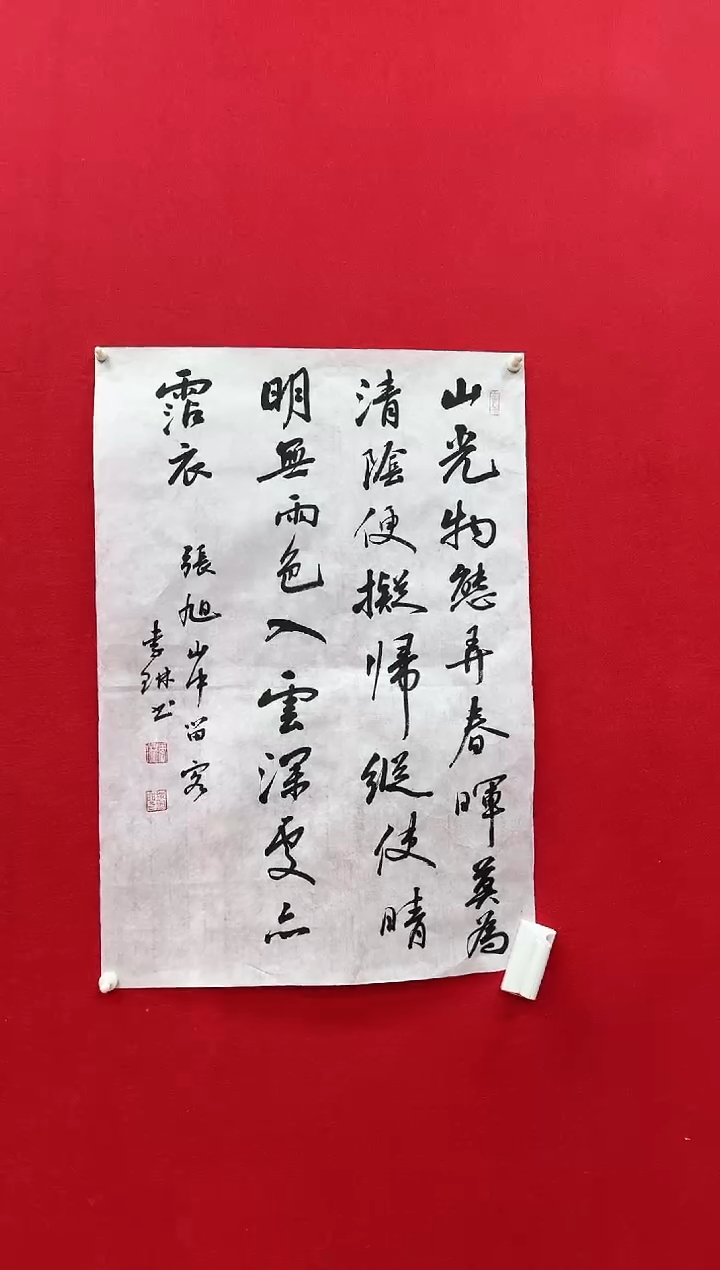 山光物態弄春暉莫為
清陰便擬帰縱使晴
明無雨色入雲深處亦
霑衣
張旭山中留客
琳书